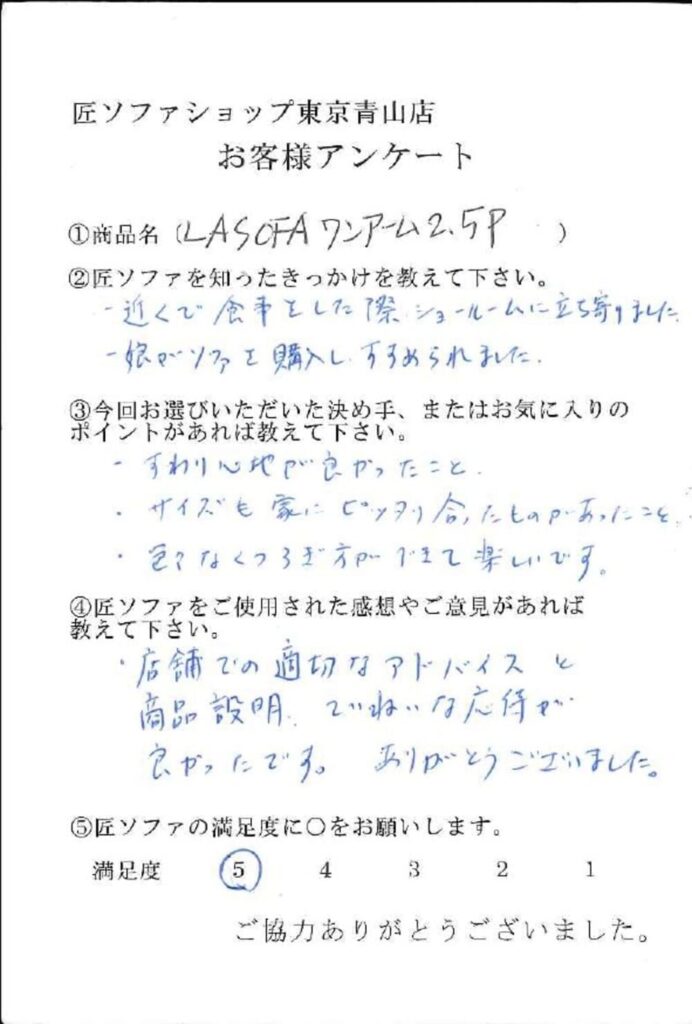 匠ソファショップ東京青山店
お客様アンケート
①商品名（LASOFAワンアーム2.5P　）
②匠ソファを知ったきっかけを教えて下さい。
- 近くで食事をした際、ショールームに立ち寄りました
- 娘がソファを購入し、すすめられました.
③今回お選びいただいた決め手、またはお気に入りの
ポイントがあれば教えて下さい。
- すわり心地が良かったこと.
・サイズも家にピッタリ合ったものがあったこと.
・色々なくつろぎ方ができて楽しいです。
④匠ソファをご使用された感想やご意見があれば
教えて下さい。
・店舗での適切なアドバイスと
商品説明、ていねいな応待が
良かったです。 ありがとうございました。
⑤匠ソファの満足度に〇をお願いします。
満足度 5 4 3 2 1
ご協力ありがとうございました。